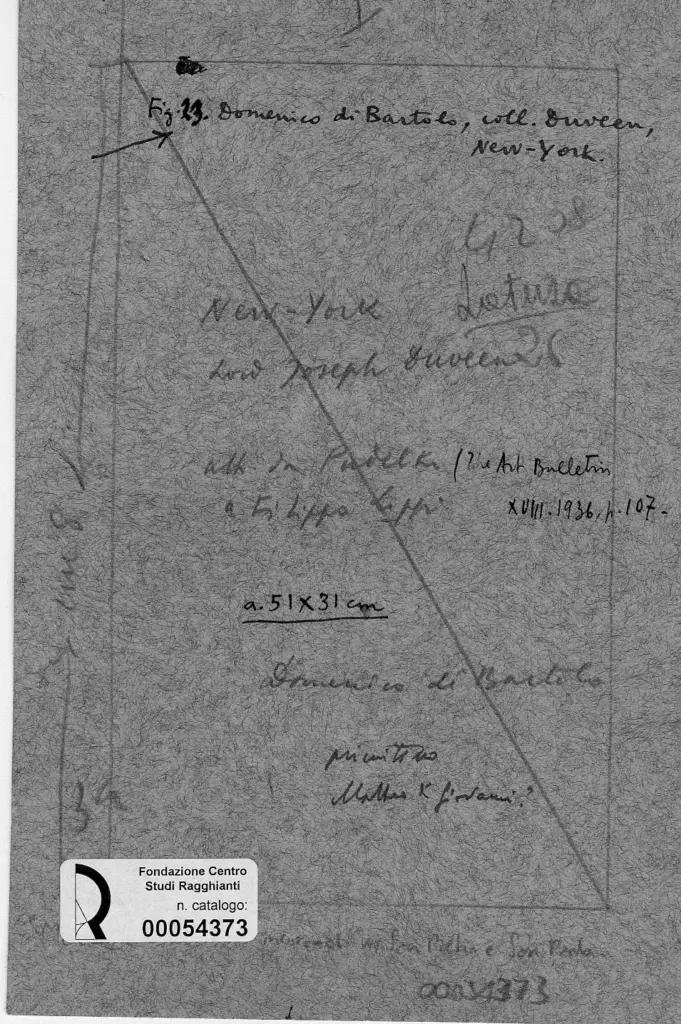 Fig. 23. Domenico di Bartolo, coll. Duveen,
New-York.
New-York
Lord Joseph Duveen 26
att. da Pudelko (The Art Bulletin
a Filippo Lippi XVIII. 1936, p. 107-
cm 8
a. 51 X 31 cm
Domenico di Bartolo
primitivo
Matteo di Giovanni?
Fondazione Centro
Studi Ragghianti
n. catalogo:
00054373
San Pietro e San Paolo
00054373